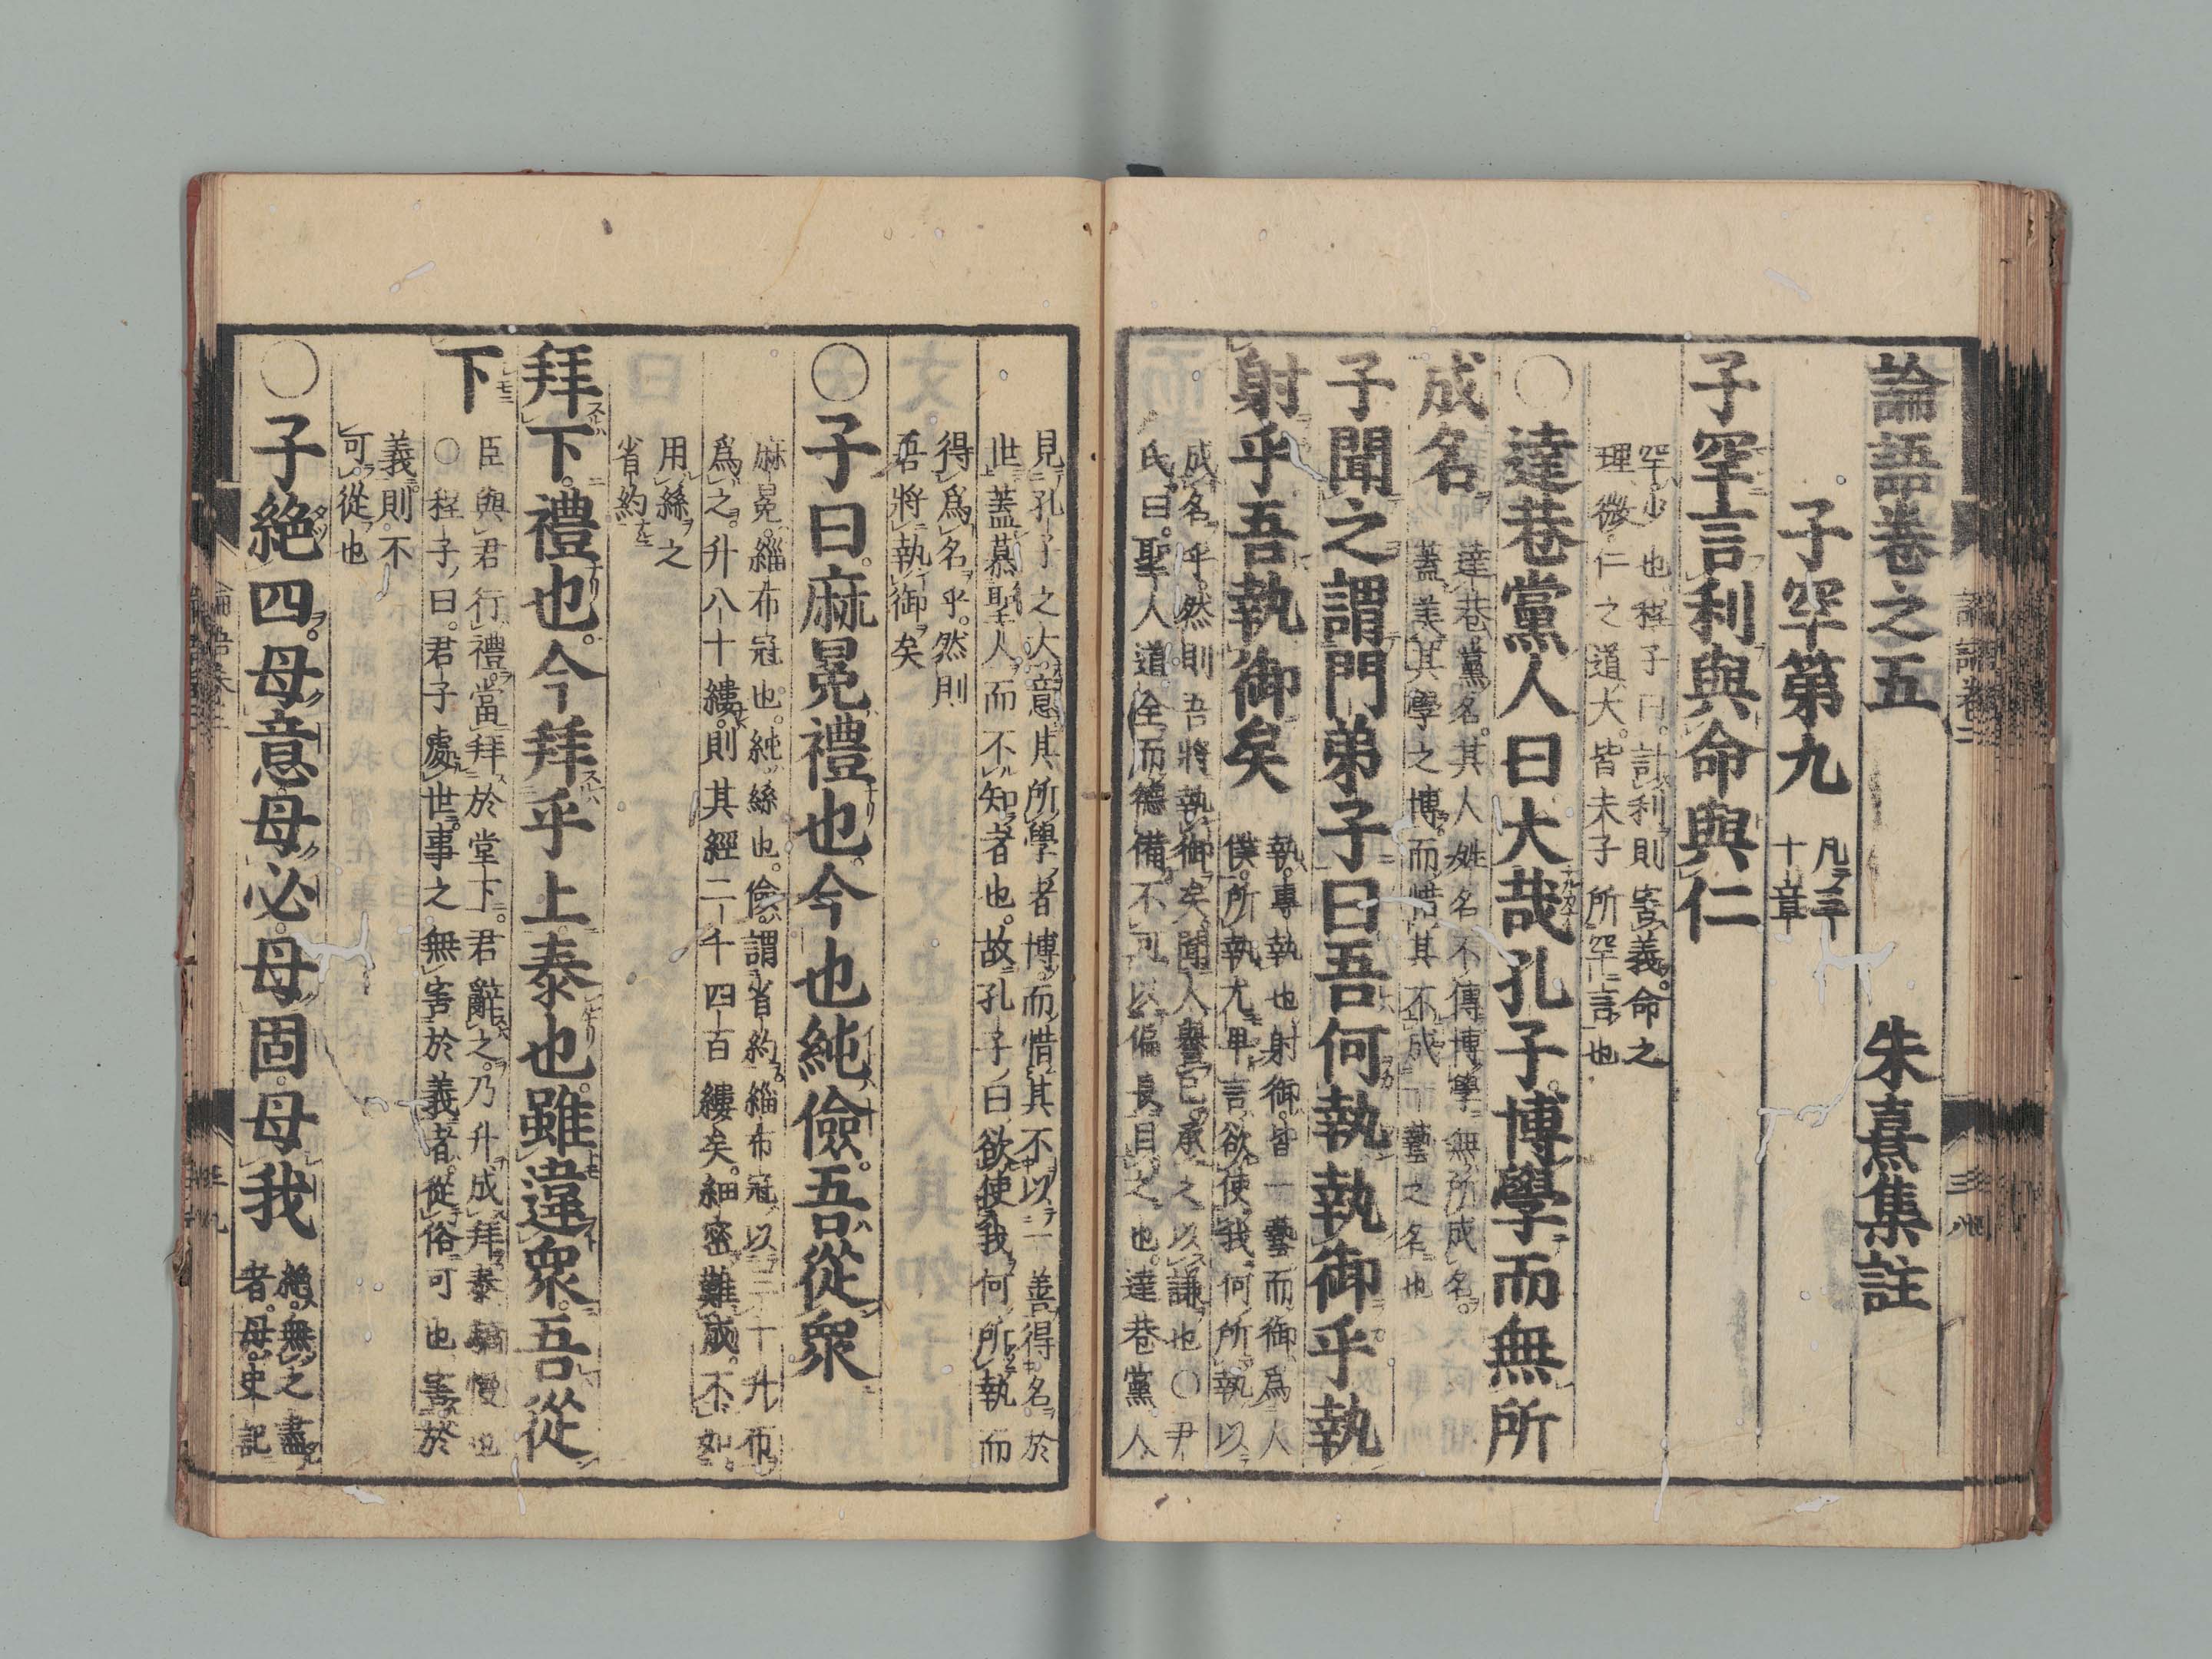 論語卷之五 朱熹集註
子罕第九 凡三
十章
子罕言利與命與仁
罕少也程子曰計利則害義命之
理微仁之道大皆夫子所罕言也
○達巷黨人曰大哉孔子博學而無所
成名
達巷黨名其人姓名不傳博學無所成名
蓋美其學之博而惜其不成一藝之名也
子聞之謂門弟子曰吾何執執御乎執
射乎吾執御矣
執專執也射御皆一藝而御爲人
僕所執尤卑言欲使我何所執以
成名乎然則吾將執御矣聞人譽己承之以謙也○尹
氏曰聖人道全而德備不可以偏長目之也達巷黨人
見孔子之大意其所學者博而惜其不以一善得名於
世蓋慕聖人而不知者也故孔子曰欲使我何所執而
得爲名乎然則
吾將執御矣
○子曰麻冕禮也今也純儉吾從眾
麻冕緇布冠也純絲也儉謂省約緇布冠以三十升布
爲之升八十縷則其經二千四百縷矣細密難成不如
用絲之
省約
拜下禮也今拜乎上泰也雖違眾吾從
下
臣與君行禮當拜於堂下君辭之乃升成拜泰驕慢也
○程子曰君子處世事之無害於義者從俗可也害於
義則不
可從也
○子絶四毋意毋必毋固毋我
絶無之盡
者毋史記